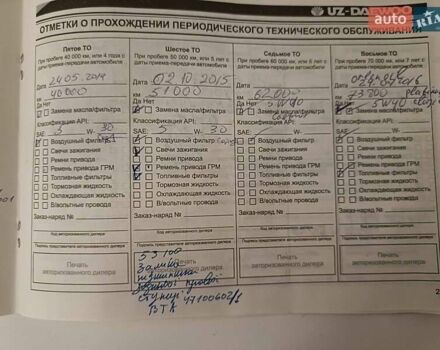 auto RIA
UZ-DAEWOO
ОТМЕТКИ О ПРОХОЖДЕНИИ ПЕРИОДИЧЕСКОГО ТЕХНИЧЕСКОГО ОБСЛУЖИВАНИЯ
Пятое ТО
При пробеге 40 000 км, или 4 года с
даты приемa-передачи автомобиля
Дата 24.05.2014
км 40000
Да Нет
Замена масла/фильтра
Классификация API:
SAE: 5 W- 30
Воздушный фильтр
Свечи зажигания
Ремни привода
Ремень привода ГРМ
Топливные фильтры
Тормозная жидкость
Охлаждающая жидкость
В/вольтные провода
Заказ-наряд №
Код авторизованного дилера
Подпись представителя авторизованного дилера
Печать
авторизованного дилера
Шестое ТО
При пробеге 50 000 км, или 5 лет с
даты приема-передачи автомобиля
Дата 02.10.2015
км 51000
Да Нет
Замена масла/фильтра
Классификация API:
SAE: 5 W- 30
Воздушный фильтр
Свечи зажигания
Ремни привода
Ремень привода ГРМ
Топливные фильтры
Тормозная жидкость
Охлаждающая жидкость
В/вольтные провода
Заказ-наряд №
Код авторизованного дилера
Подпись представителя авторизованного дилера
53100
Замена
подшипника
правой
ступицы
Седьмое ТО
При пробеге 60 000 км, или 6 лет с
даты приема-передачи автомобиля
Дата
км 62000
Да Нет 5W40
Замена масла/фильтра
Классификация API:
SAE: W-
Воздушный фильтр
Свечи зажигания
Ремни привода
Ремень привода ГРМ
Топливные фильтры
Тормозная жидкость
Охлаждающая жидкость
В/вольтные провода
Заказ-наряд №
Код авторизованного дилера
Подпись представителя авторизованного дилера
Печать
авторизованного дилера
Восьмое ТО
При пробеге 70 000 км, или 7 лет с
даты приема-передачи автомобиля
Дата
км 73800
Да Нет 5W40
Замена масла/фильтра
Классификация API:
SAE: W-
Воздушный фильтр
Свечи зажигания
Ремни привода
Ремень привода ГРМ
Топливные фильтры
Тормозная жидкость
Охлаждающая жидкость
В/вольтные провода
Заказ-наряд №
Код авторизованного дилера
Подпись представителя авторизованного дилера
Печать
авторизованного дилера